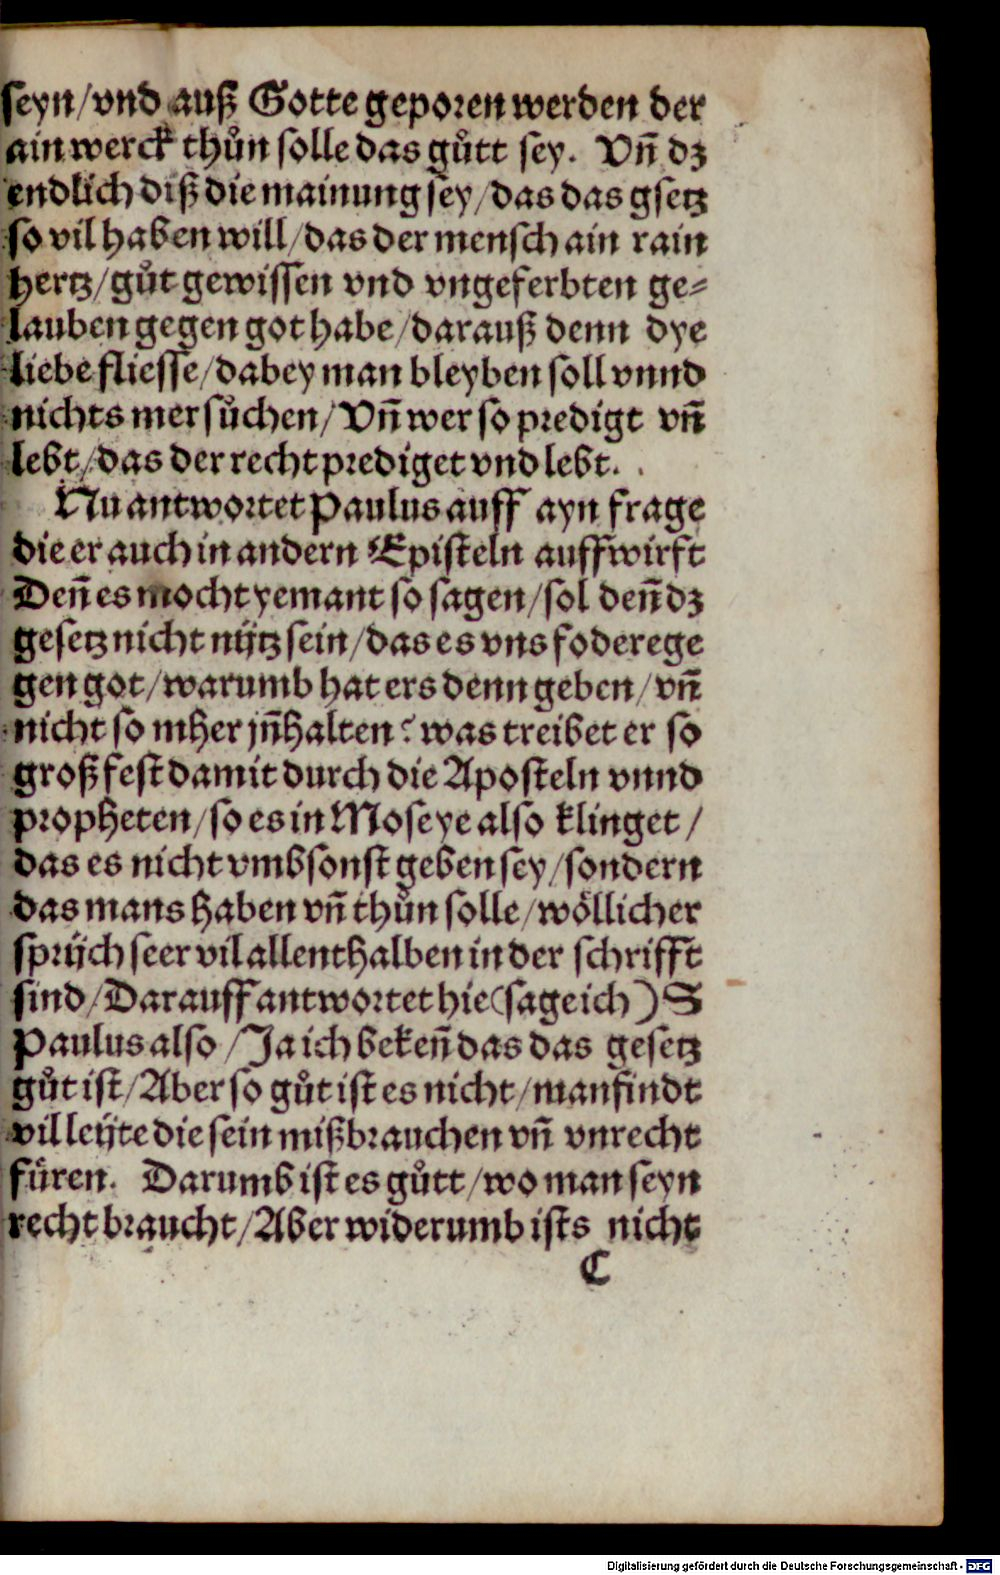 seyn/vnd auß Gotte geporen werden der
ain werck thůn solle das gůtt sey. Vñ dz
endlich diß die mainung sey/das das gsetz
so vil haben will/das der mensch ain rain
hertz/gůt gewissen vnd vngeferbten ge⸗
lauben gegen got habe/darauß denn dye
liebe fliesse/dabey man bleyben soll vnnd
nichts mer sůchen/Vñ wer so predigt vñ
lebt/das der recht prediget vnd lebt.
Nu antwortet Paulus auff ayn frage
die er auch in andern Episteln auffwirft
Deñ es mocht yemant so sagen/sol deñ dz
gesetz nicht nütz sein/das es vns fodere ge
gen got/warumb hat ers denn geben/vñ
nicht so mher jñhalten? was treibet er so
groß fest damit durch die Aposteln vnnd
propheten/so es in Moseye also klinget/
das es nicht vmbsonst geben sey/sondern
das mans haben vñ thůn solle/wöllicher
sprüch seer vil allenthalben in der schrifft
sind/Darauff antwortet hie(sage ich) S
Paulus also/Ja ich bekeñ das das gesetz
gůt ist/Aber so gůt ist es nicht/man findt
vil leüte die sein mißbrauchen vñ vnrecht
füren. Darumb ist es gůtt/wo man seyn
recht braucht/Aber widerumb ists nicht
C
Digitalisierung gefördert durch die Deutsche Forschungsgemeinschaft - DFG